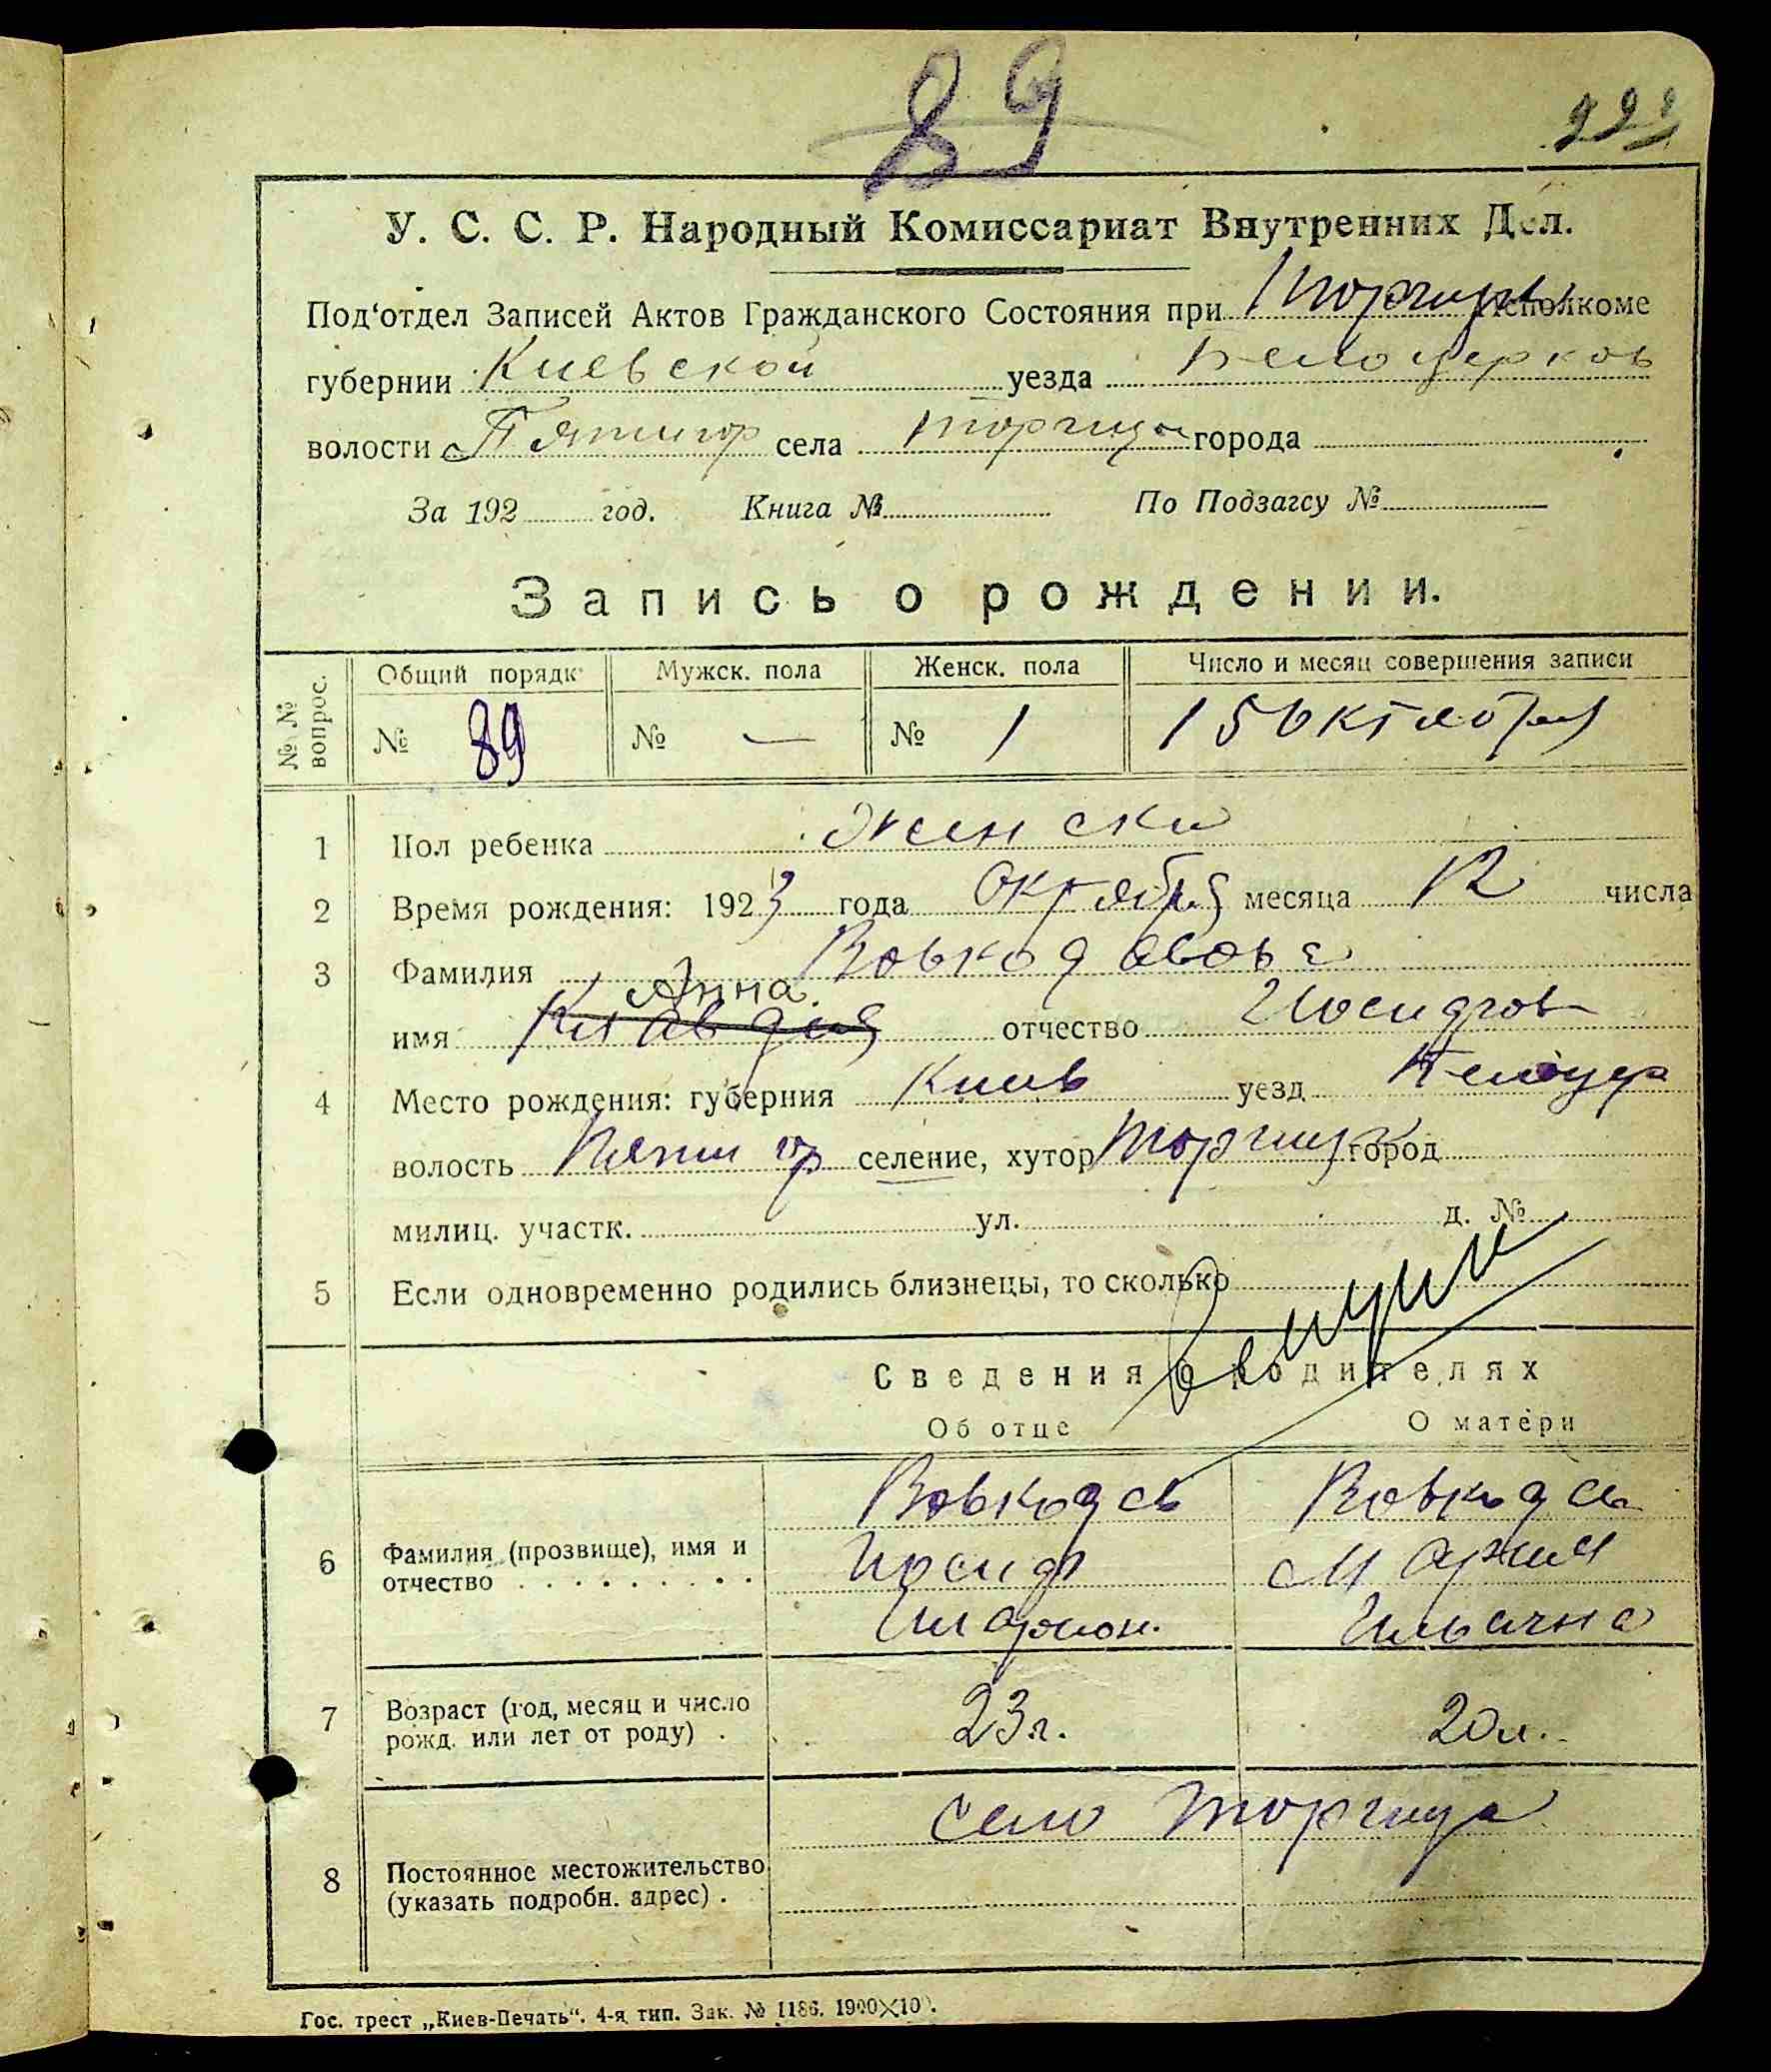 89
У. С. С. Р. Народный Комиссариат Внутренних Дел.
Под'отдел Записей Актов Гражданского Состояния при Торчицы исполкоме
губернии Киевской уезда Белоцерков
волости Пятигор села Торчица города
За 192 год. Книга № По Подзагсу №
Запись о рождении.
№ № вопрос. Общий порядк Мужск. пола Женск. пола Число и месяц совершения записи
№ 89 № — № 1 15 Октября
1 Пол ребенка Женски
2 Время рождения: 1923 года Октября месяца 12 числа
3 Фамилия Вовкод
Анна
имя Клавдия отчество Иосифов
4 Место рождения: губерния Киев уезд Белоцер
волость Пятигор селение, хутор Торчица город
милиц. участк. ул. д. №
5 Если одновременно родились близнецы, то сколько
Сведения о родителях
Об отце О матери
Вовкодав Вовкодав
6 Фамилия (прозвище), имя и отчество Иосиф Мария
Ларион. Ильична
7 Возраст (год, месяц и число рожд. или лет от роду) . 23 л. 20 л.
село Торчица
8 Постоянное местожительство (указать подробн. адрес) .
Гос. трест „Киев-Печать“. 4-я тип. Зак. № 1186. 1900×100.